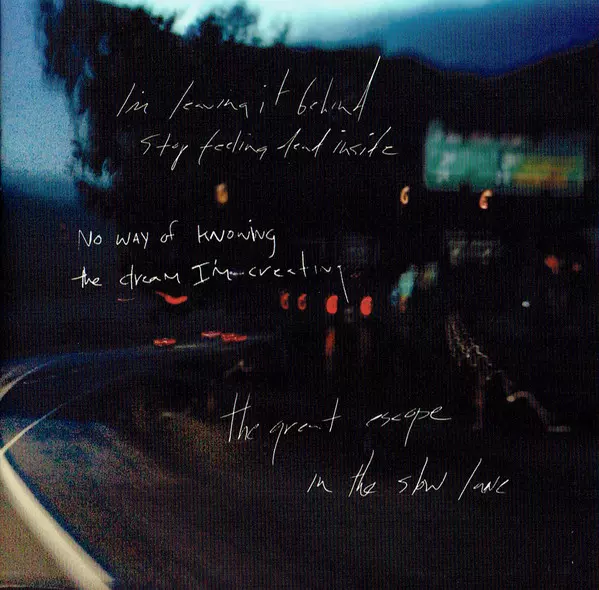 I'm leaving it behind
stop feeling dead inside
No way of knowing
the dream I'm creating
the great escape
in the slow lane